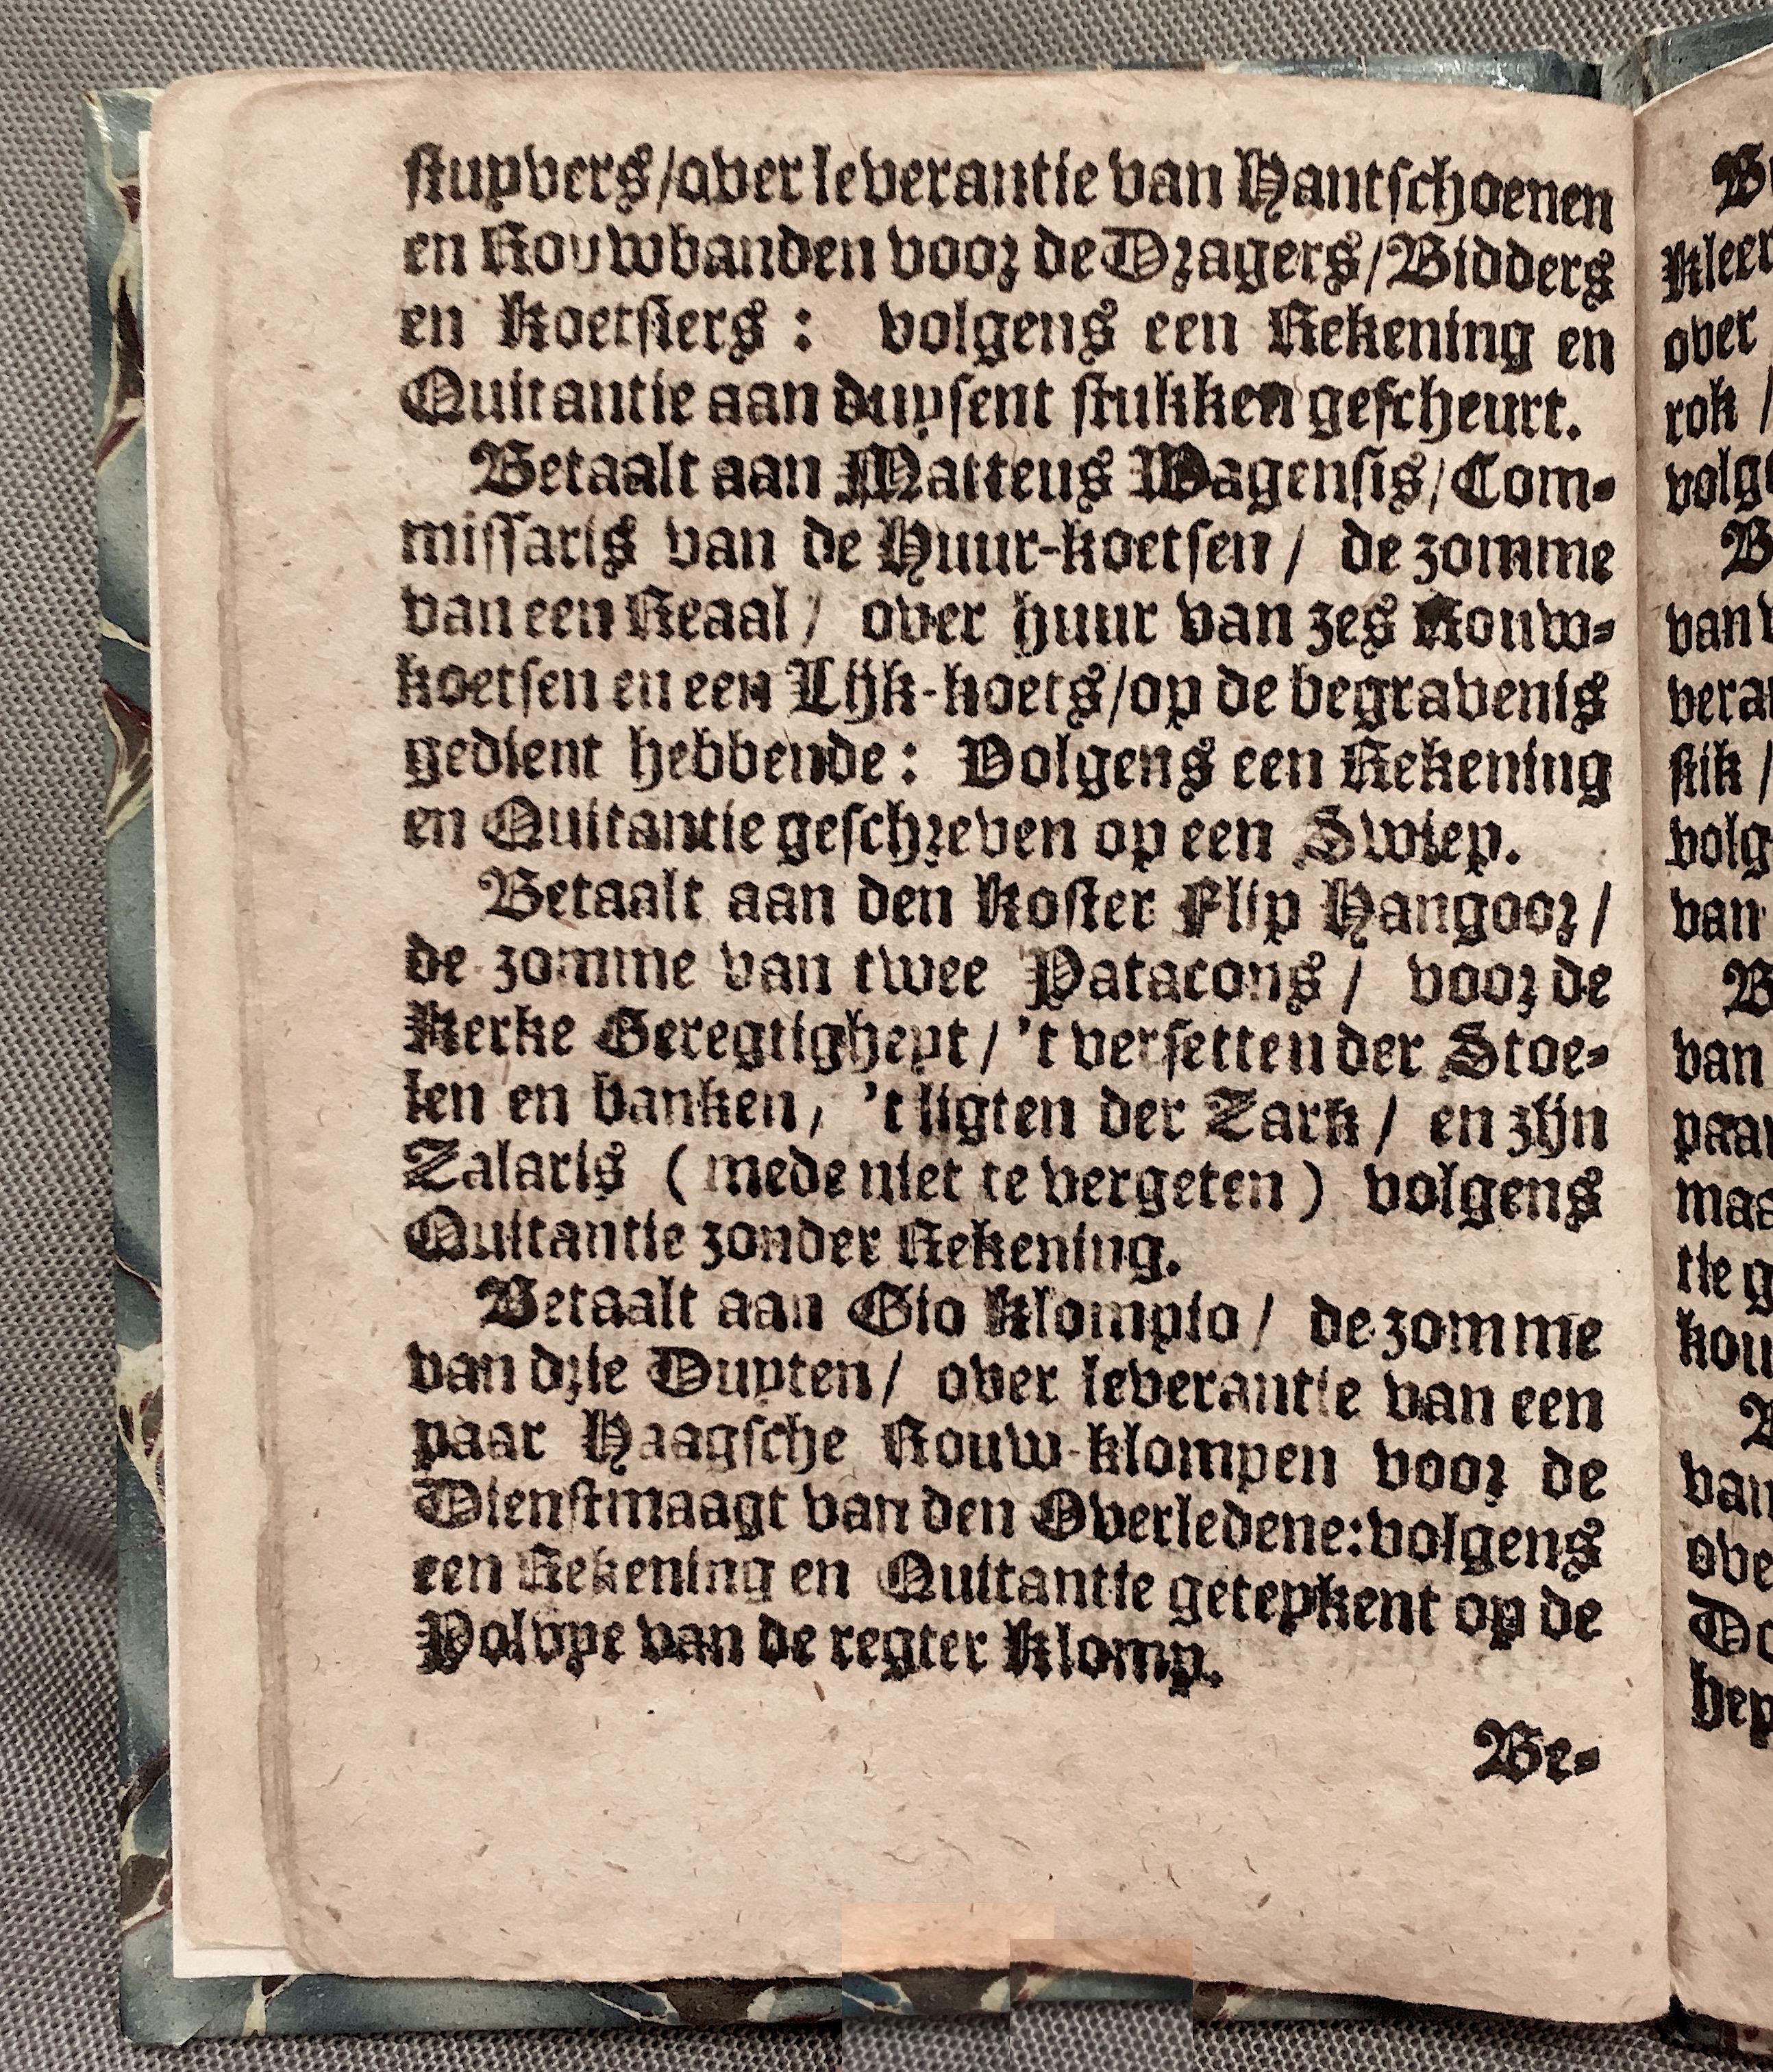 stuyvers/over leverantie van Hantschoenen
en Rouwbanden voor de Dragers/Bidders
en Koetsiers : volgens een Rekening en
Quitantie aan duysent stukken gescheurt.
Betaalt aan Matteus Wagensis/Com-
missaris van de Huur-koetsen / de zomme
van een Reaal / over huur van zes Rouw-
koetsen en een Lijk-koets/op de begravenis
gedient hebbende : Volgens een Rekening
en Quitantie geschreven op een Swiep.
Betaalt aan den Koster Flip Hangoor /
de zomme van twee Patacons / voor de
Kerke Geregtigheyt / 't versetten der Stoe-
len en banken, 't ligten der Zark / en zijn
Zalaris ( mede niet te vergeten ) volgens
Quitantie zonder Rekening.
Betaalt aan Gio Klompio / de zomme
van drie Duyten / over leverantie van een
paar Haagsche Rouw-klompen voor de
Dienstmaagt van den Overledene: volgens
een Rekening en Quitantie geteykent op de
Polvye van de regter Klomp.
Be-
Kleer
over
rok /
volg
van
vera
stik /
volg
van
van
paar
maa
tie g
kou
van
ove
hey